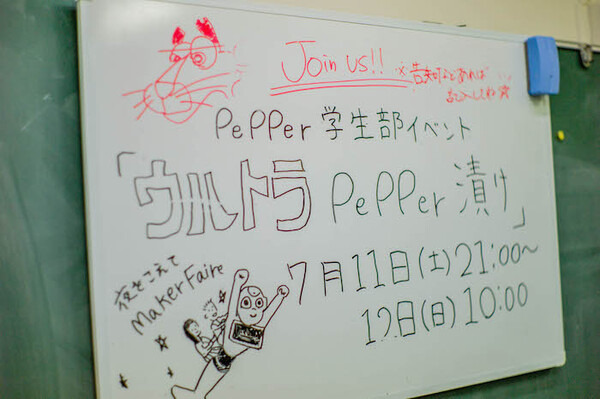 Join us!!
※告知などあれば
記入してね☆
PePPer 学生部イベント
「ウルトラ PePPer 漬け」
夜をこえて
Maker Faire
7月11日(土)21:00~
12日(日)10:00